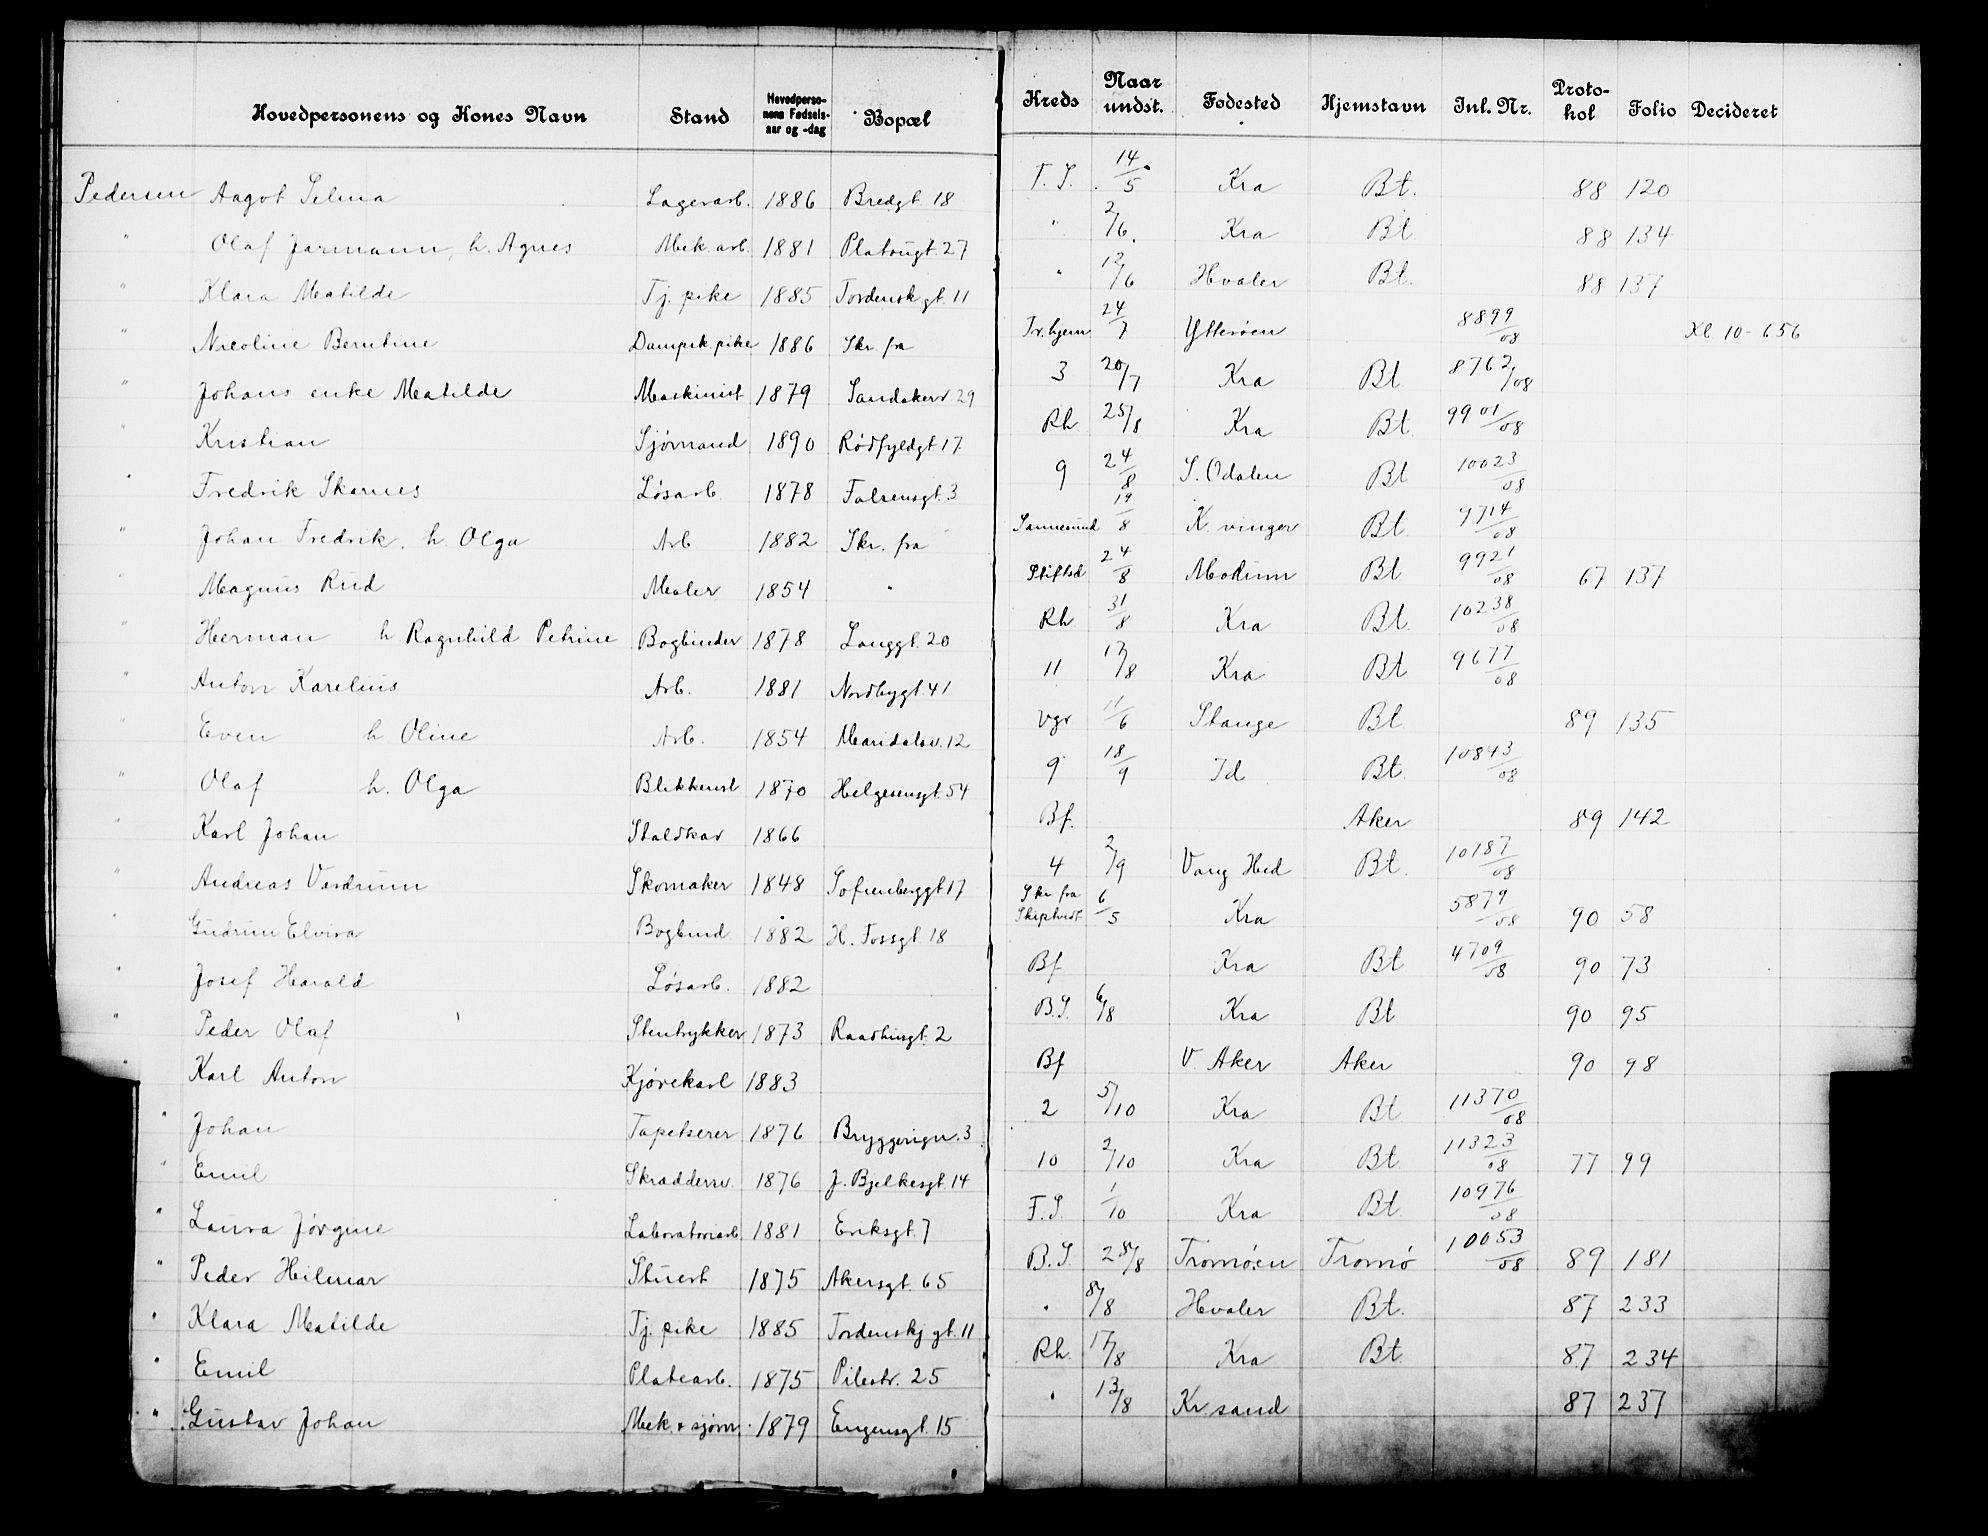 Hovedpersonens og Kones Navn Stand Hovedpersonens Fødselsaar og -dag Bopæl Kreds Naar undst. Fødested Hjemstavn Inl. Nr. Protokol Folio Decideret
Pedersen Aagot Selma Lagerarb. 1886 Bredgt 18 F. S. 14/5 Kra Bt. 88 120
" Olaf Jarmann, h. Agnes Mek. arb. 1881 Platougt. 27 " 2/6. Kra Bt. 88 134
" Klara Matilde Tj. pike 1885 Tordenskgt. 11 " 12/6 Hvaler Bt. 88 137
" Nicoline Berntine Dampk. pike 1886 Skr. fra Tr.hjem 24/7 Ytterøen 8899/08 Kl 10-656
" Johans enke Matilde Maskinist 1879 Sandakerv. 29 3 20/7 Kra Bt 8762/08
" Kristian Sjømand 1890 Rødfyldgt. 17 Rh 25/8 Kra Bt. 9901/08
" Fredrik Skarnes Løsarb. 1878 Falsensgt. 3 9 24/8 S. Odalen Bt 10023/08
" Johan Fredrik, h. Olga Arb 1882 Skr. fra Sannesund 19/8 K. vinger Bt. 9714/08
" Magnus Rud Maler 1854 " Stiftsd 24/8 Modum Bt 9921/08 67 137
" Herman h Ragnhild Petrine Bogbinder 1878 Langgt. 20 Rh 31/8 Kra Bt. 10238/08
" Anton Karelius Arb. 1881 Nordbygt. 41 11 17/8 Kra Bt 9677/08
" Even h Oline Arb. 1854 Maridalsv. 12 Vgr 11/6 Stange Bt. 89 135
" Olaf h. Olga Blikkensl 1870 Helgesensgt. 54 9 18/9 Id Bt. 10843/08
" Karl Johan Staldkar 1866 Bf. Aker 89 142
" Andreas Vardrum Skomaker 1848 Sofienberggt 17 4 2/9 Vang Hed Bt. 10187/08
" Gudrun Elvira Bogbind. 1882 H. Fossgt. 18 Skr fra Skiptvedt 6/5 Kra 5879/08 90 58
" Josef Harald Løsarb. 1882 Bf Kra Bt 4709/08 90 73
" Peder Olaf Stentrykker 1873 Raadhusgt. 2 B. S. 6/8 Kra Bt 90 95
" Karl Anton Kjørekarl 1883 Bf V. Aker Aker 90 98
" Johan Tapetserer 1876 Bryggerign. 3 2 5/10 Kra Bt 11370/08
" Emil Skræddersv. 1876 J. Bjelkesgt. 14 10 2/10 Kra Bt. 11323/08 77 99
" Laura Jørgine Laboratoriearb. 1881 Eriksgt. 7 F. S. 1/10 Kra Bt. 10976/08
" Peder Hilmar Stuert 1875 Akersgt. 65 B. S. 25/8 Tromøen Tromø 10053/08 89 181
" Klara Matilde Tj. pike 1885 Tordenskj gt. 11 " 8/8 Hvaler Bt. 87 233
" Emil Platearb. 1875 Pilestr. 25 Rh. 17/8 Kra Bt. 87 234
" Gustav Johan Mek. & sjøm. 1879 Engensgt. 15 " 13/8 Kr. sand 87 237